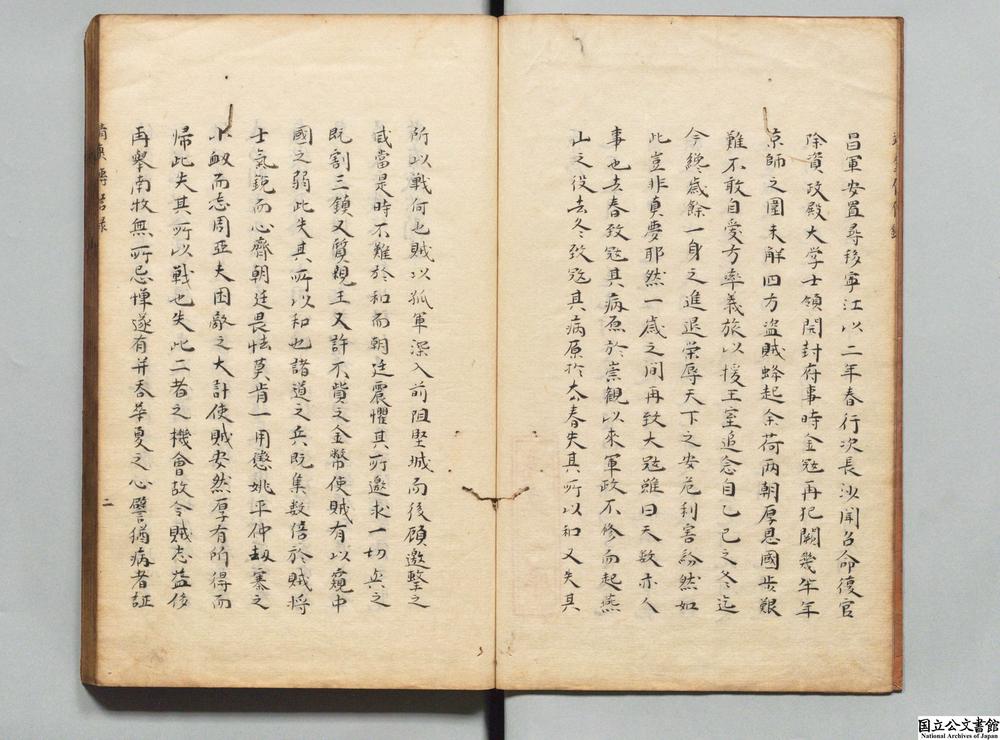 昌軍安置尋移寧江以二年春行次長沙聞召命復官
除資政殿大学士領開封府事時金寇再犯闕幾半年
京師之圍未解四方盗賊蜂起余荷兩朝厚恩國步艱
難不敢自愛方率義旅以援王室追念自乙巳之冬迄
今纔歲餘一身之進退榮辱天下之安危利害紛然如
此豈非真夢耶然一歲之间再致大寇雖曰天数亦人
事也去春致寇其病原於崇観以來軍政不修而起燕
山之役去冬致寇其病原於去春失其所以和又失其
所以戦何也賊以孤軍深入前阻堅城而後顧邀擊之
威當是時不難於和而朝廷震懼其所邀求一切與之
既割三鎮又質親王又許不貲之金幣使賊有以窺中
國之弱此失其所以和也諸道之兵既集数倍於賊将
士氣銳而心齊朝廷畏怯莫肯一用懲姚平仲刼寨之
小衂而志周亞夫困敵之大計使賊安然厚有所得而
帰此失其所以戦也失此二者之機會故令賊志益侈
再舉南牧無所忌憚遂有并吞華夏之心譬猶病者証
二
国立公文書館
National Archives of Japan